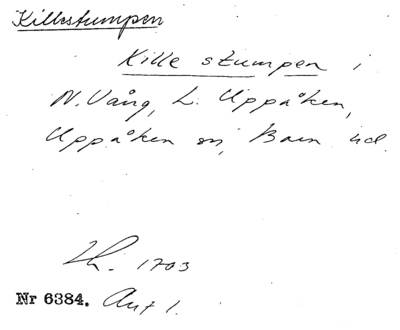 Killestumpen
Kille stumpen i
N. Vång, L. Uppåken,
Uppåken sn, Baen hd.
Lh. 1703
Nr 6384. Avf 1.